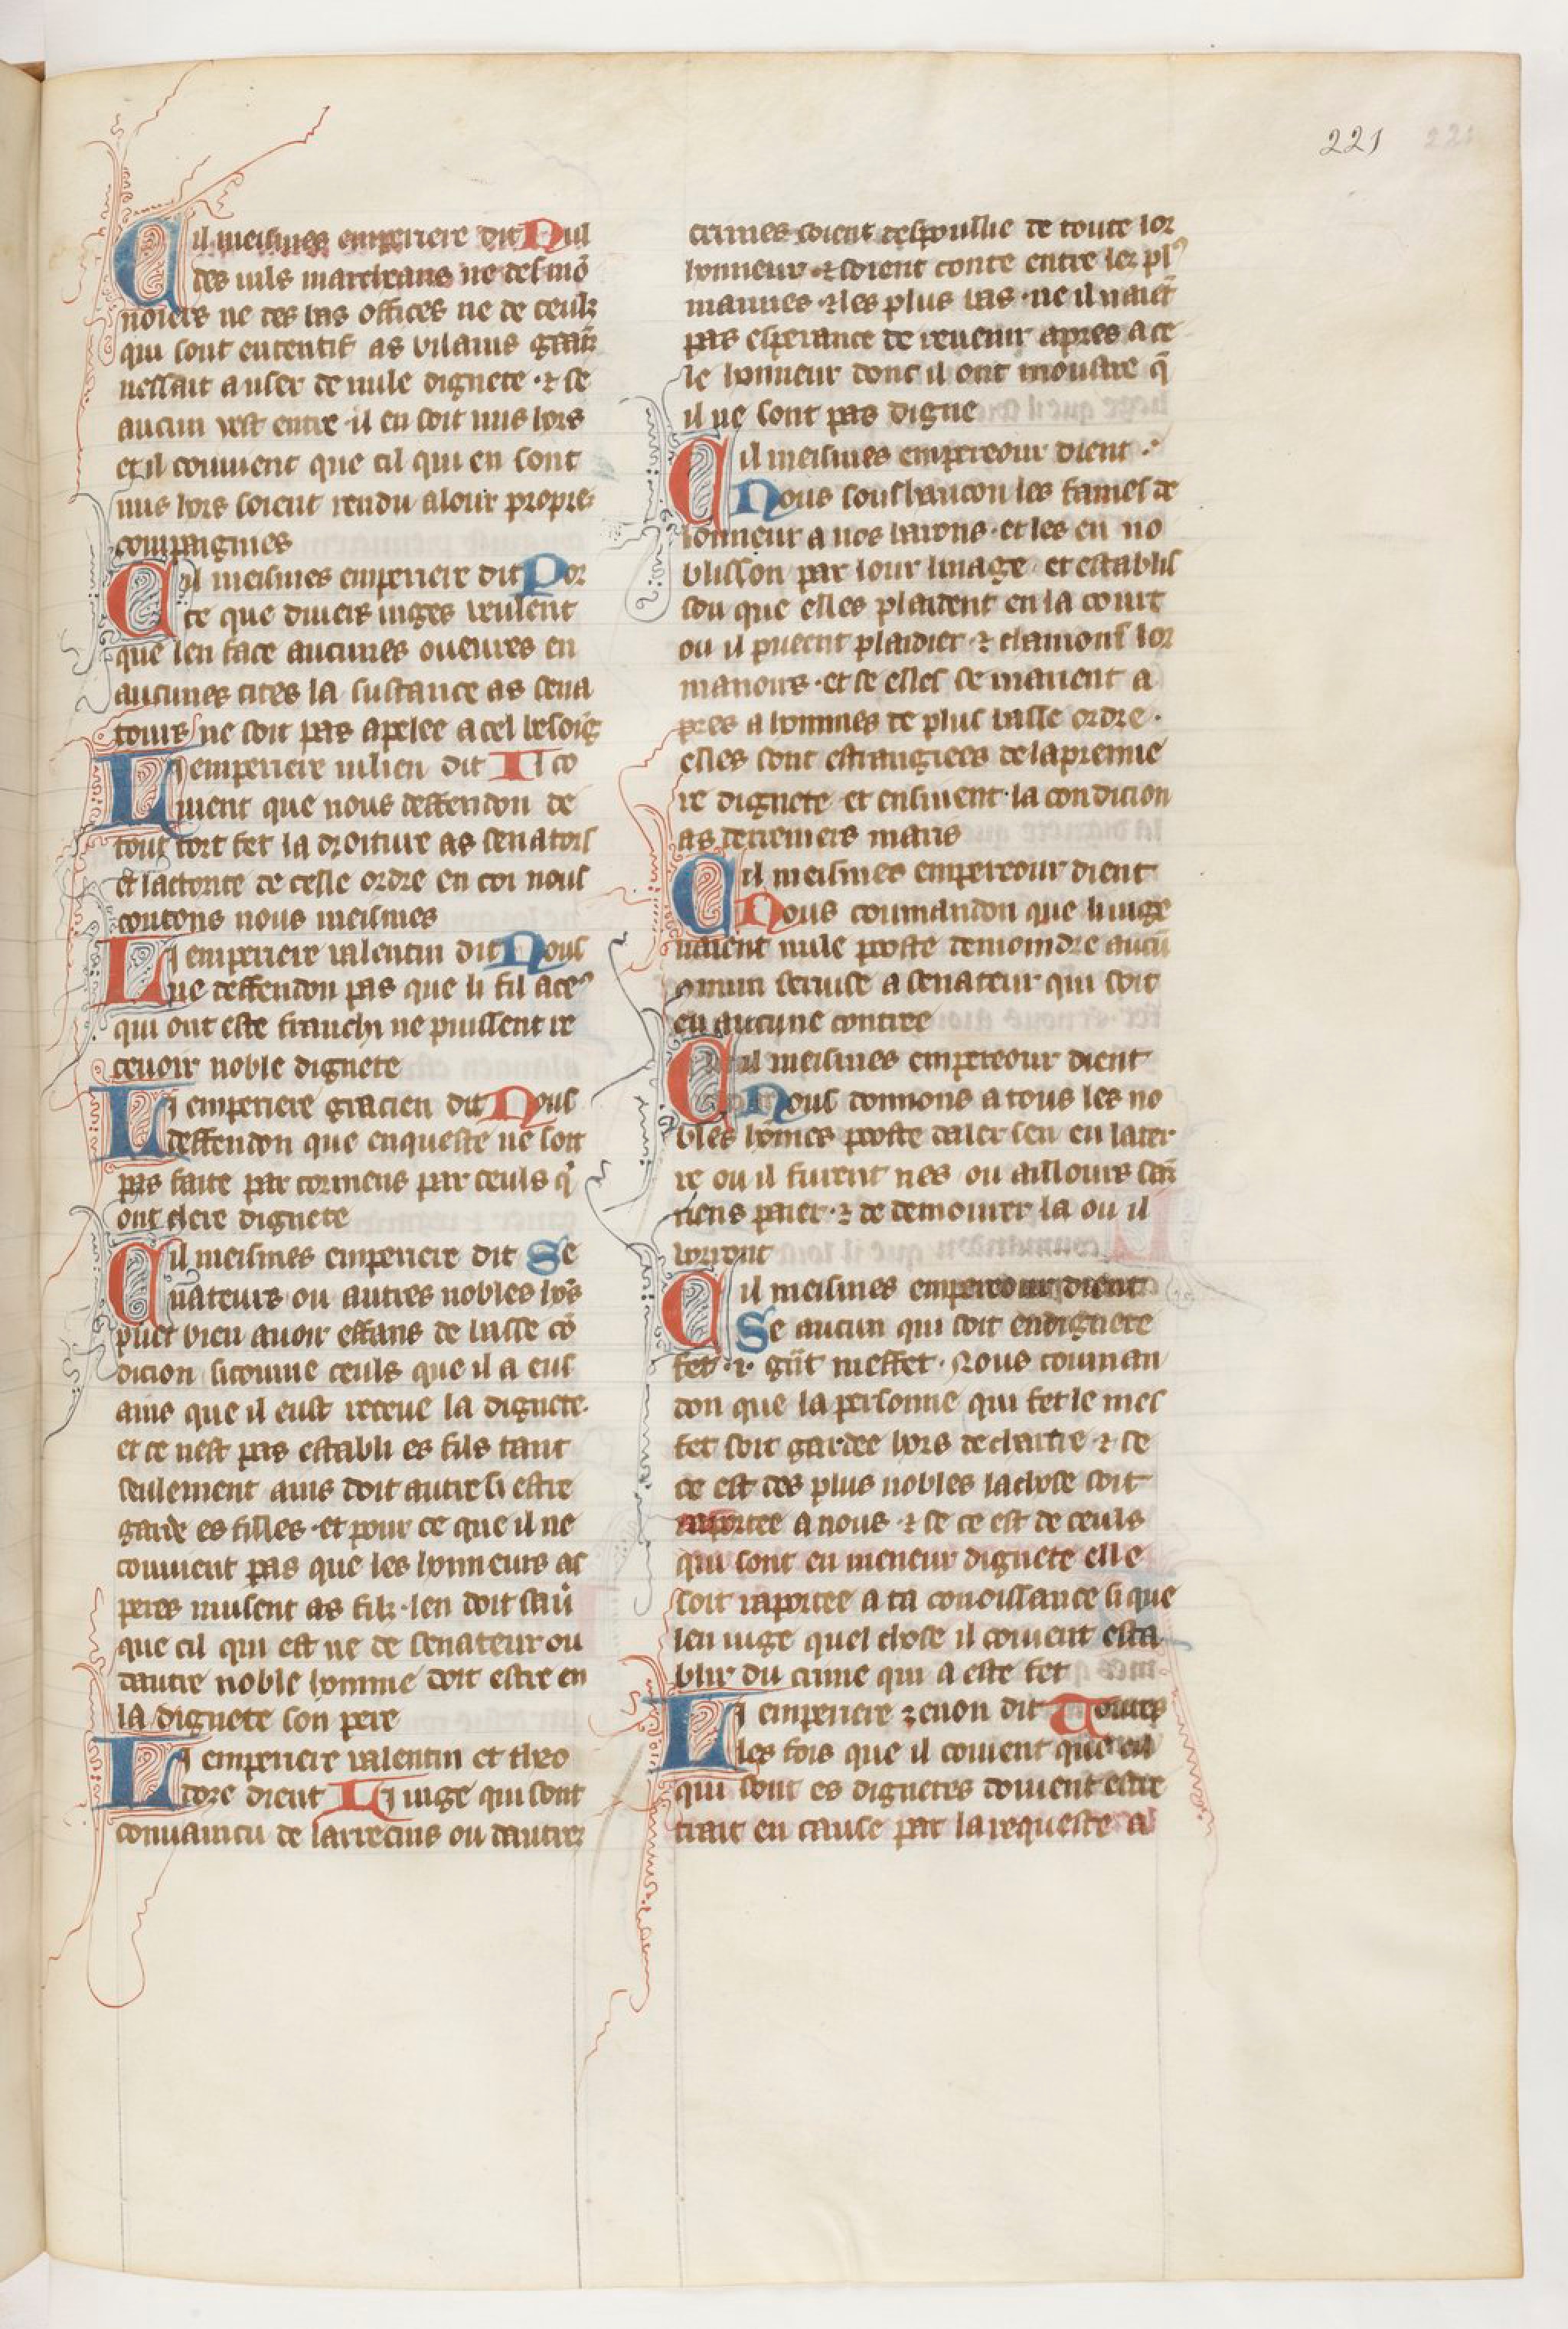 221
Cil meismes emperiere dit Nul
des uils marcheans ne des mō
noiers ne des bas offices ne de ceulz
qui sont ententif as vilains gaāiz
nessait a user de nule dignete · ⁊ se
aucun yest entre · il en soit mis hors
et il couuient que cil qui en sont
mis hors soient rendu a lour propres
compaignies
Cil meismes emperiere dit Por
ce que diuers iuges veulent
que len face aucunes oueures en
aucunes cites la sustance as sena
tours ne soit pas apelee a cel besoīg
Li emperiere iulien dit Il co
uient que nous deffendon de
tout tort fet la droiture as senators
et lactorite de celle ordre en coi nous
contons nous meismes
Li emperiere valentin dit Nous
ne deffendon pas que li fil a ceꝰ
qui ont este franchi ne puissent re
ceuoir noble dignete
Li emperiere gracien dit Nous
deffendon que enqueste ne soit
pas faite par tormens par ceuls q̇
ont clere dignete
Cil meismes emperiere dit Se
nateurs ou autres nobles hōs
puet bien auoir effans de basse cō
dicion sicomme ceuls que il a eus
ains que il eust receue la dignete
et ce nest pas establi es fils tant
seulement ains doit autre si estre
garde es filles · et pour ce que il ne
couuient pas que les honneurs as
peres nuisent as filz · len doit sau̇
que cil qui est ne de senateur ou
dautre noble homme doit estre en
la dignete son pere
Li emperiere valentin et theo
dore dient Li iuge qui sont
conuaincu de larrecins ou dautres
crimes soient despoullie de toute lor
honneur · ⁊ soient conte entre les plꝰ
mauues · ⁊ les plus bas · ne il naiēt
pas esperance de reuenir apres a ce
le honneur dont il ont moustre q̄
il ne sont pas digne
Cil meismes empereour dient ·
Nous soushaucon les fames de
lonneur a nos barons · et les en no
blisson par lour linage · et establis
son que elles plaident en la court
ou il pueent plaidier · ⁊ clamons lor
manoirs · et se elles se marient a
pres a hommes de plus basse ordre ·
elles sont estrangiees de la premie
re dignete et ensiuent · la condicion
as derreniers maris
Cil meismes empereour dient
Nous coumandon que li iuge
naient nule poste demoindre aucū
omun seruise a senateur qui soit
en aucune contree
Cil meismes empereour dient
Nous donnons a tous les no
bles hōmes poste daler sen en la ter
re ou il furent nes ou aillours sās
riens paier · ⁊ de demourer la ou il
vorront
Cil meismes empereour dient
Se aucun qui soit en dignete
fet · i · grāt meffet · Nous couman
don que la personne qui fet le mes
fet soit gardee hors de chartre · ⁊ se
ce est des plus nobles la chose soit
raportee a nous · ⁊ se ce est de ceuls
qui sont en meneur dignete elle
soit raportee a ta conoissance si que
len iuge quel chose il couient esta
blir du crime qui a este fet
Li emperiere zenon dit Toutes
les fois que il couient que cil
qui sont es dignetes doiuent estre
trait en cause par la requeste a